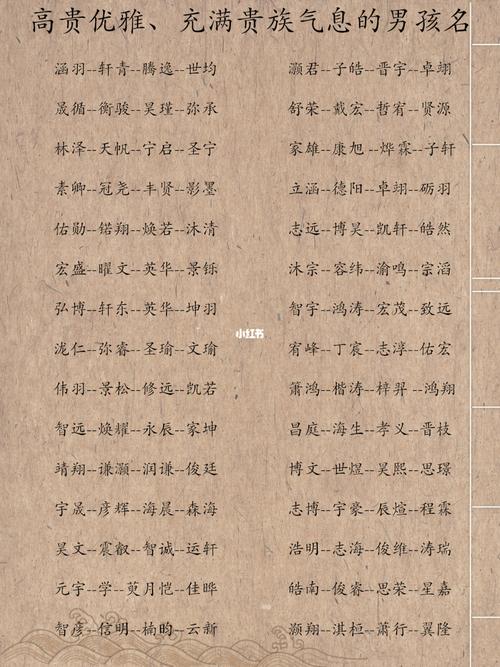 高贵优雅、充满贵族气息的男孩名
涵羽--轩青--腾逸--世均
晟循--衡骏--昊瑾--弥承
林泽--天帆--宁启--圣宁
素卿--冠尧--丰贤--影墨
佑勋--锘翔--焕若--沐清
宏盛--曜文--英华--景铄
弘博--轩东--英华--坤羽
泷仁--弥睿--圣瑜--文瑜
伟羽--景松--修远--凯若
智远--焕耀--永辰--家坤
靖翔--谦灏--润谦--俊廷
宇晟--彦辉--海晨--森海
昊文--震叡--智诚--运轩
元宇--学--萸月恺--佳晔
智彦--信明--楠昀--云新
灏君--子皓--晋宇--卓翊
舒荣--戴宏--哲宥--贤源
家雄--康旭--烨霖--子轩
立涵--德阳--卓翊--砺羽
志远--博昊--凯轩--皓然
沐宗--容纬--渝鸣--宗滔
智宇--鸿涛--宏茂--致远
宥峰--丁宸--志淳--佑宏
萧鸿--楷涛--梓羿--鸿翔
昌庭--海生--孝义--晋枝
博文--世煜--吴熙--思璟
志博--宇豪--辰煊--程霖
浩明--志海--俊维--涛瑞
皓南--俊睿--思荣--星嘉
灏翔--淇桓--萧行--翼隆
小红书